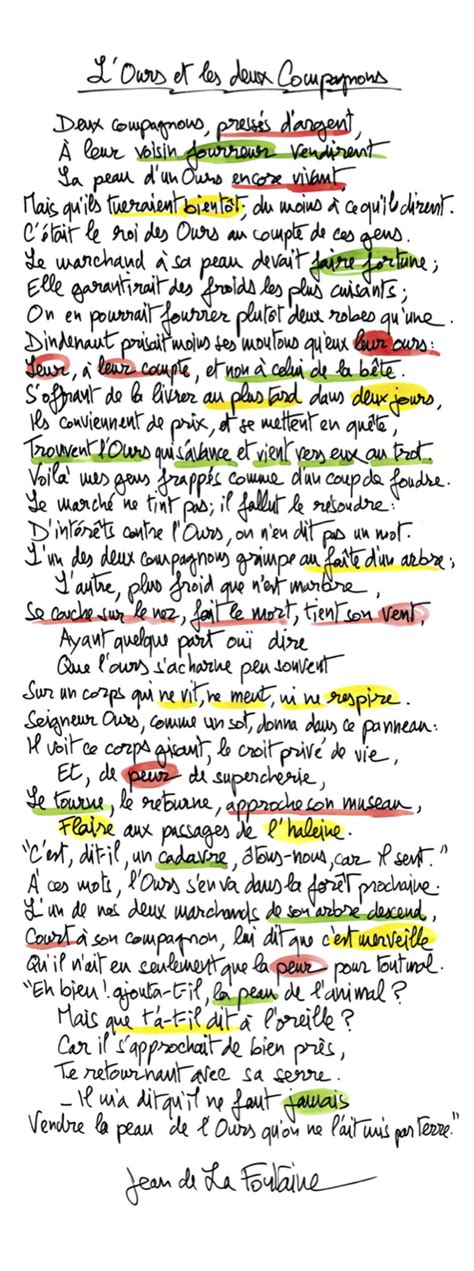 L'Ours et les deux Compagnons
Deux compagnons, pressés d'argent,
À leur voisin fourreur vendirent
La peau d'un Ours encore vivant,
Mais qu'ils tueraient bientôt; du moins à ce qu'ils dirent.
C'était le roi des Ours au compte de ces gens.
Le marchand à sa peau devait faire fortune;
Elle garantirait des froids les plus cuisants;
On en pourrait fourrer plutôt deux robes qu'une.
Dindenaut prisait moins ses moutons qu'eux leur ours:
Leur, à leur compte, et non à celui de la bête.
S'offrant de la livrer au plus tard dans deux jours,
Ils conviennent de prix, et se mettent en quête,
Trouvent l'Ours qui s'avance et vient vers eux au trot.
Voilà mes gens frappés comme d'un coup de foudre.
Le marché ne tint pas; il fallut le résoudre:
D'intérêts contre l'Ours, on n'en dit pas un mot.
L'un des deux compagnons grimpe au faîte d'un arbre;
L'autre, plus froid que n'est marbre,
Se couche sur le nez, fait le mort, tient son vent,
Ayant quelque part ouï dire
Que l'ours s'acharne peu souvent
Sur un corps qui ne vit, ne meut, ni ne respire.
Seigneur Ours, comme un sot, donna dans ce panneau:
Il voit ce corps gisant, le croit privé de vie,
Et, de peur de supercherie,
Le tourne, le retourne, approche son museau,
Flaire aux passages de l'haleine.
"C'est, dit-il, un cadavre, ôtons-nous, car il sent."
À ces mots, l'Ours s'en va dans la forêt prochaine.
L'un de nos deux marchands de son arbre descend,
Court à son compagnon, lui dit que c'est merveille
Qu'il n'ait eu seulement que la peur pour tout mal.
"Eh bien! ajouta-t-il, la peau de l'animal?
Mais que t'a-t-il dit à l'oreille?
Car il s'approchait de bien près,
Te retournant avec sa serre.
– Il m'a dit qu'il ne faut jamais
Vendre la peau de l'Ours qu'on ne l'ait mis par terre."
Jean de La Fontaine